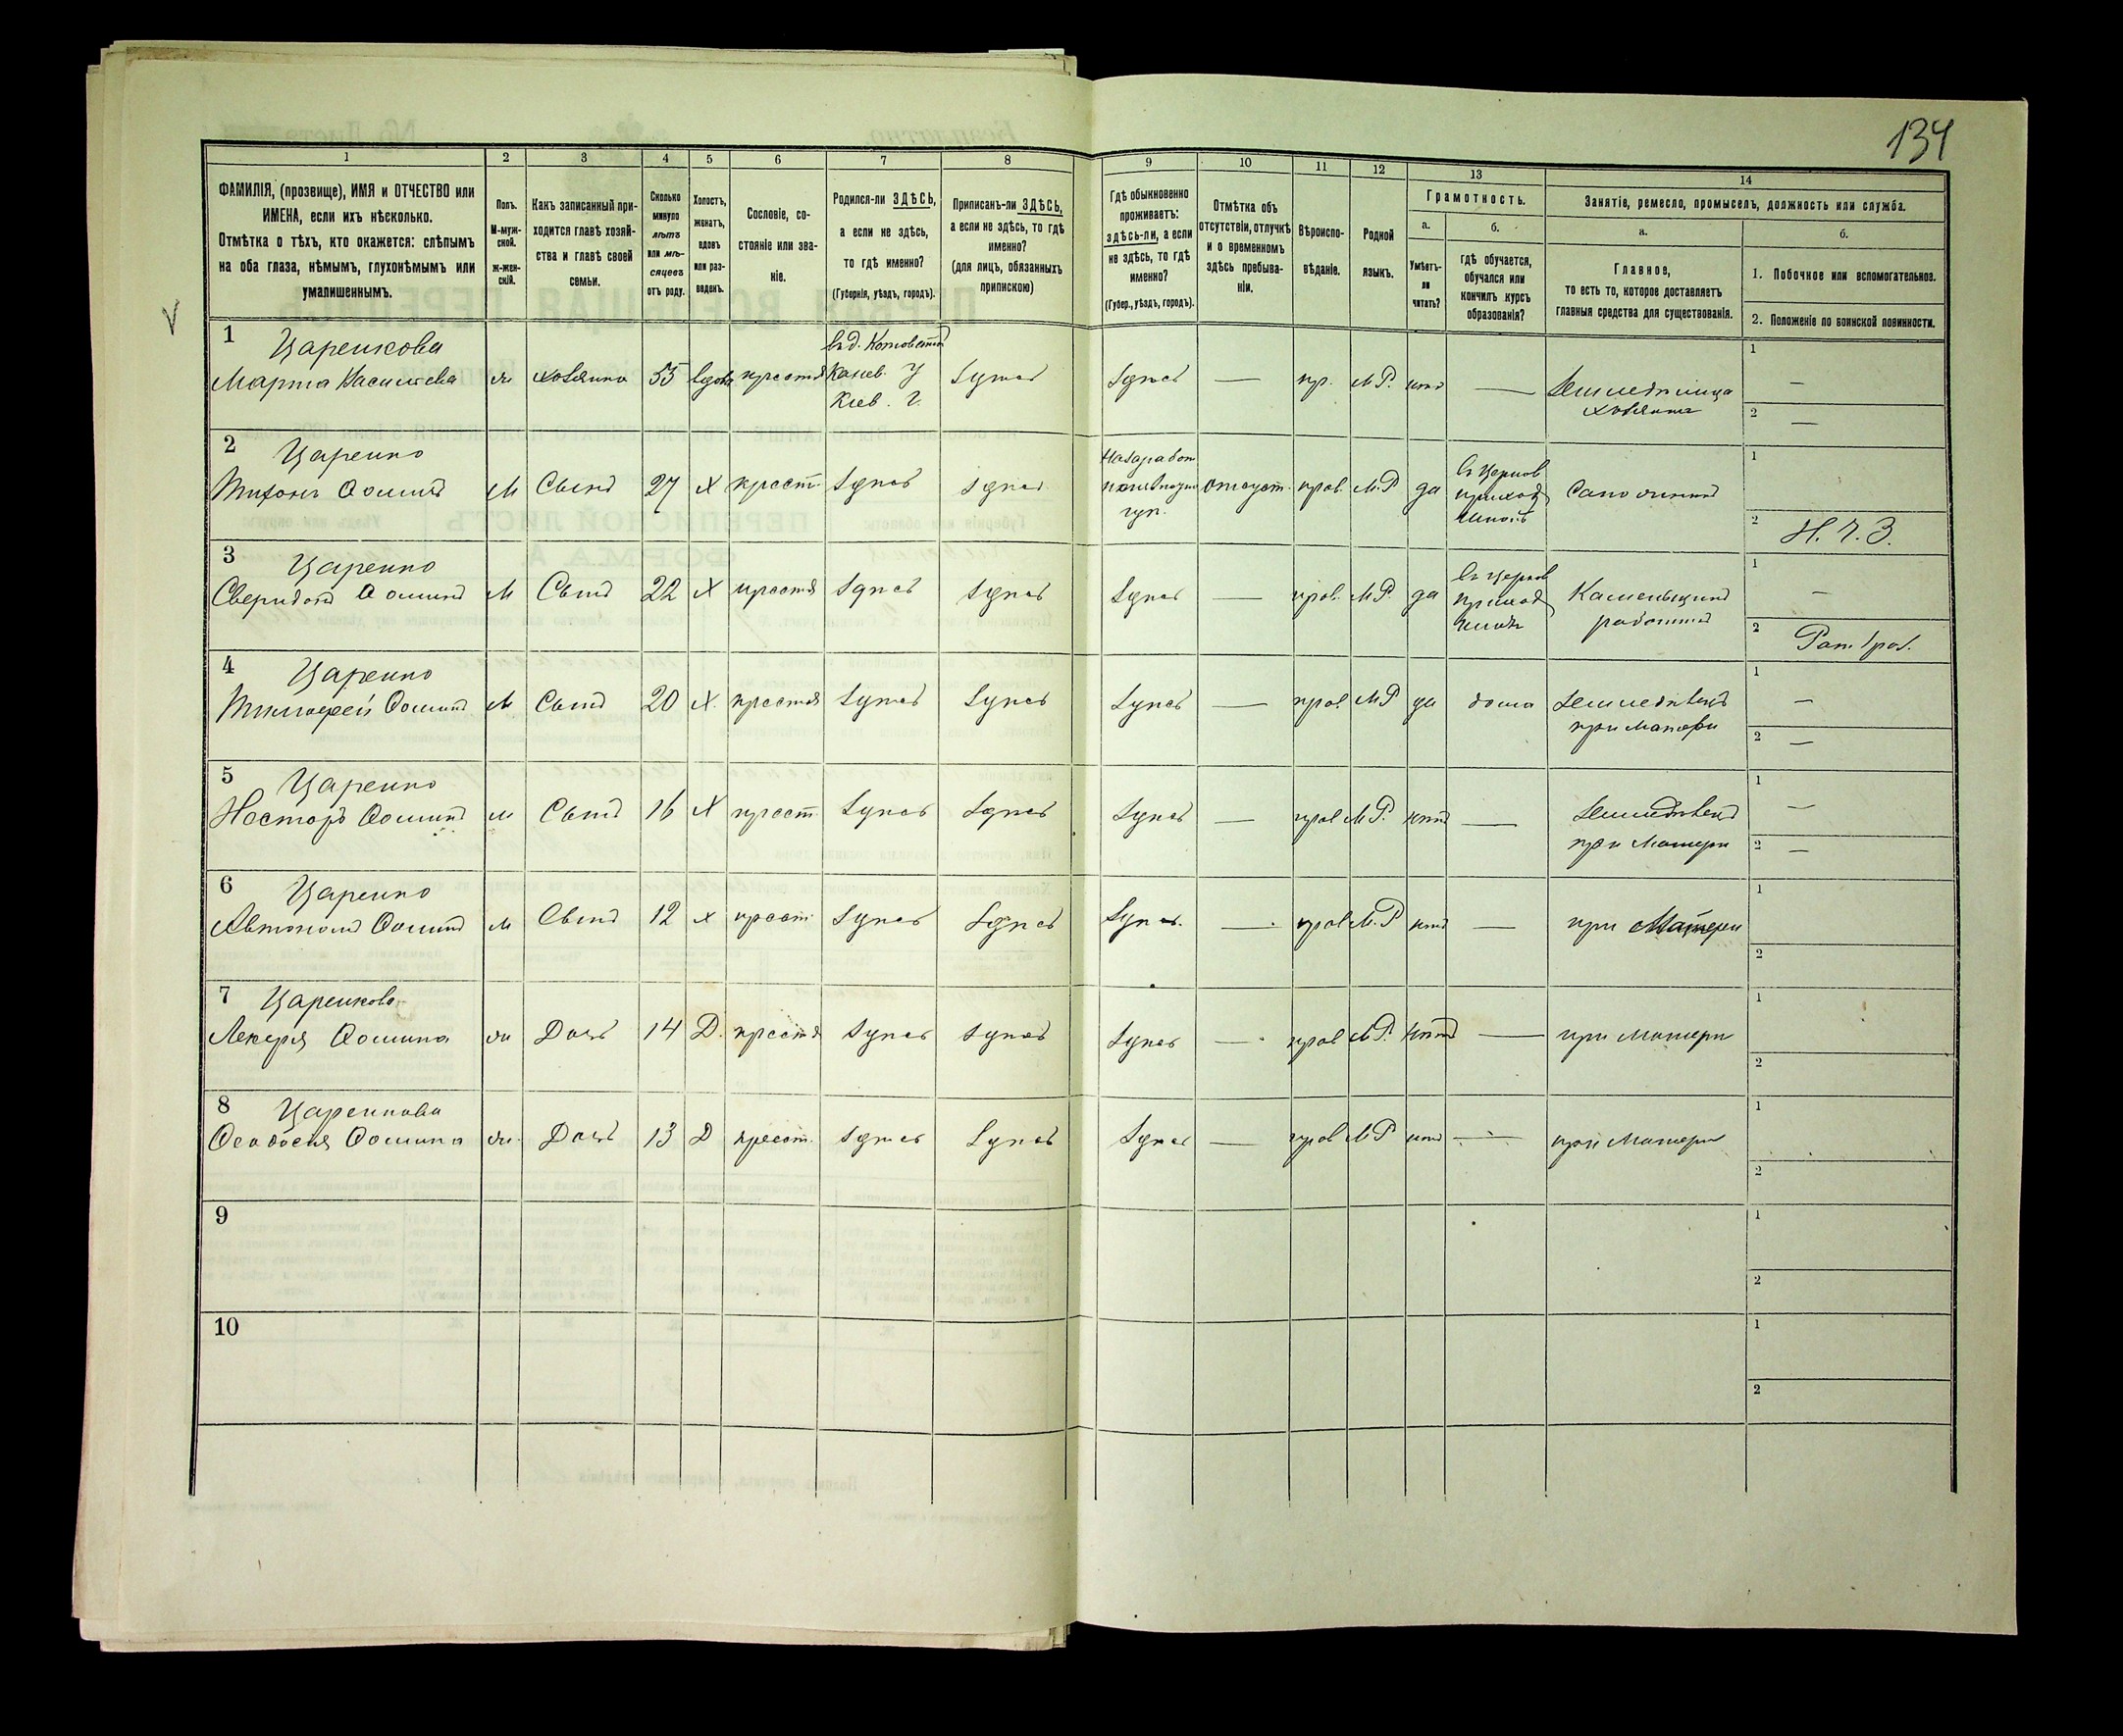 134
1 2 3 4 5 6 7 8 9 10 11 12 13 14
ФАМИЛІЯ, (прозвище), ИМЯ и ОТЧЕСТВО или
ИМЕНА, если ихъ нѣсколько.
Отмѣтка о тѣхъ, кто окажется: слѣпымъ
на оба глаза, нѣмымъ, глухонѣмымъ или
умалишеннымъ.
Полъ.
М-муж-
ской.
ж-жен-
скій.
Какъ записанный при-
ходится главѣ хозяй-
ства и главѣ своей
семьи.
Сколько
минуло
лѣтъ
или мѣ-
сяцевъ
отъ роду.
Холостъ,
женатъ,
вдовъ
или раз-
веденъ.
Сословіе, со-
стояніе или зва-
ніе.
Родился-ли ЗДѢСЬ,
а если не здѣсь,
то гдѣ именно?
(Губернія, уѣздъ, городъ).
Приписанъ-ли ЗДѢСЬ,
а если не здѣсь, то гдѣ
именно?
(для лицъ, обязанныхъ
припискою)
Гдѣ обыкновенно
проживаетъ:
здѣсь-ли, а если
не здѣсь, то гдѣ
именно?
(Губер., уѣздъ, городъ).
Отмѣтка объ
отсутствіи, отлучкѣ
и о временномъ
здѣсь пребыва-
ніи.
Вѣроиспо-
вѣданіе.
Родной
языкъ.
Грамотность.
а.
Умѣетъ-
ли
читать?
б.
гдѣ обучается,
обучался или
кончилъ курсъ
образованія?
Занятіе, ремесло, промыселъ, должность или служба.
а.
Главное,
то есть то, которое доставляетъ
главныя средства для существованія.
б.
1. Побочное или вспомогательное.
2. Положеніе по воинской повинности.
1 Царенкова
Марта Васильева ж хозяйка 55 вдова крестья
Канев. У
Кіев. Г.
здѣсь здѣсь — пр. М.Р. нѣтъ — Землед
хозяйка
1 —
2 —
2 Царенко
Тихонъ Ѳоминъ М Сынъ 27 Х крест. здѣсь здѣсь
На заработ
губ.
отсуст. прав. М.Р да
въ Церков
приход
школѣ
Сапожникъ
1
2 Н. Ч. З.
3 Царенко
Свиридонъ Ѳоминъ М Сынъ 22 Х крестья здѣсь здѣсь здѣсь — прав. М.Р. да
въ Церков
приход
школѣ
Каменьщикъ
работникъ
1 —
2 Рат 1 раз.
4 Царенко
Тимофей Ѳоминъ М Сынъ 20 Х. крестья здѣсь здѣсь здѣсь — прав М.Р да дома Земледѣлецъ
при Матери
1 —
2 —
5 Царенко
Несторъ Ѳоминъ м Сынъ 16 Х крест здѣсь здѣсь здѣсь — прав М.Р. нѣтъ — Земледѣлецъ
при Матери
1 —
2 —
6 Царенко
Автономъ Ѳоминъ м Сынъ 12 х крест здѣсь здѣсь здѣсь. — прав М.Р нѣтъ — при Матери
1
2
7 Царенкова
Лекерія Ѳомина ж Дочь 14 Д. крестья здѣсь здѣсь здѣсь — прав М.Р. нѣтъ — при Матери
1
2
8 Царенкова
Ѳеодосія Ѳомина ж. Дочь 13 Д крест. здѣсь здѣсь здѣсь — прав М.Р нѣтъ — при Матери
1
2
9
1
2
10
1
2